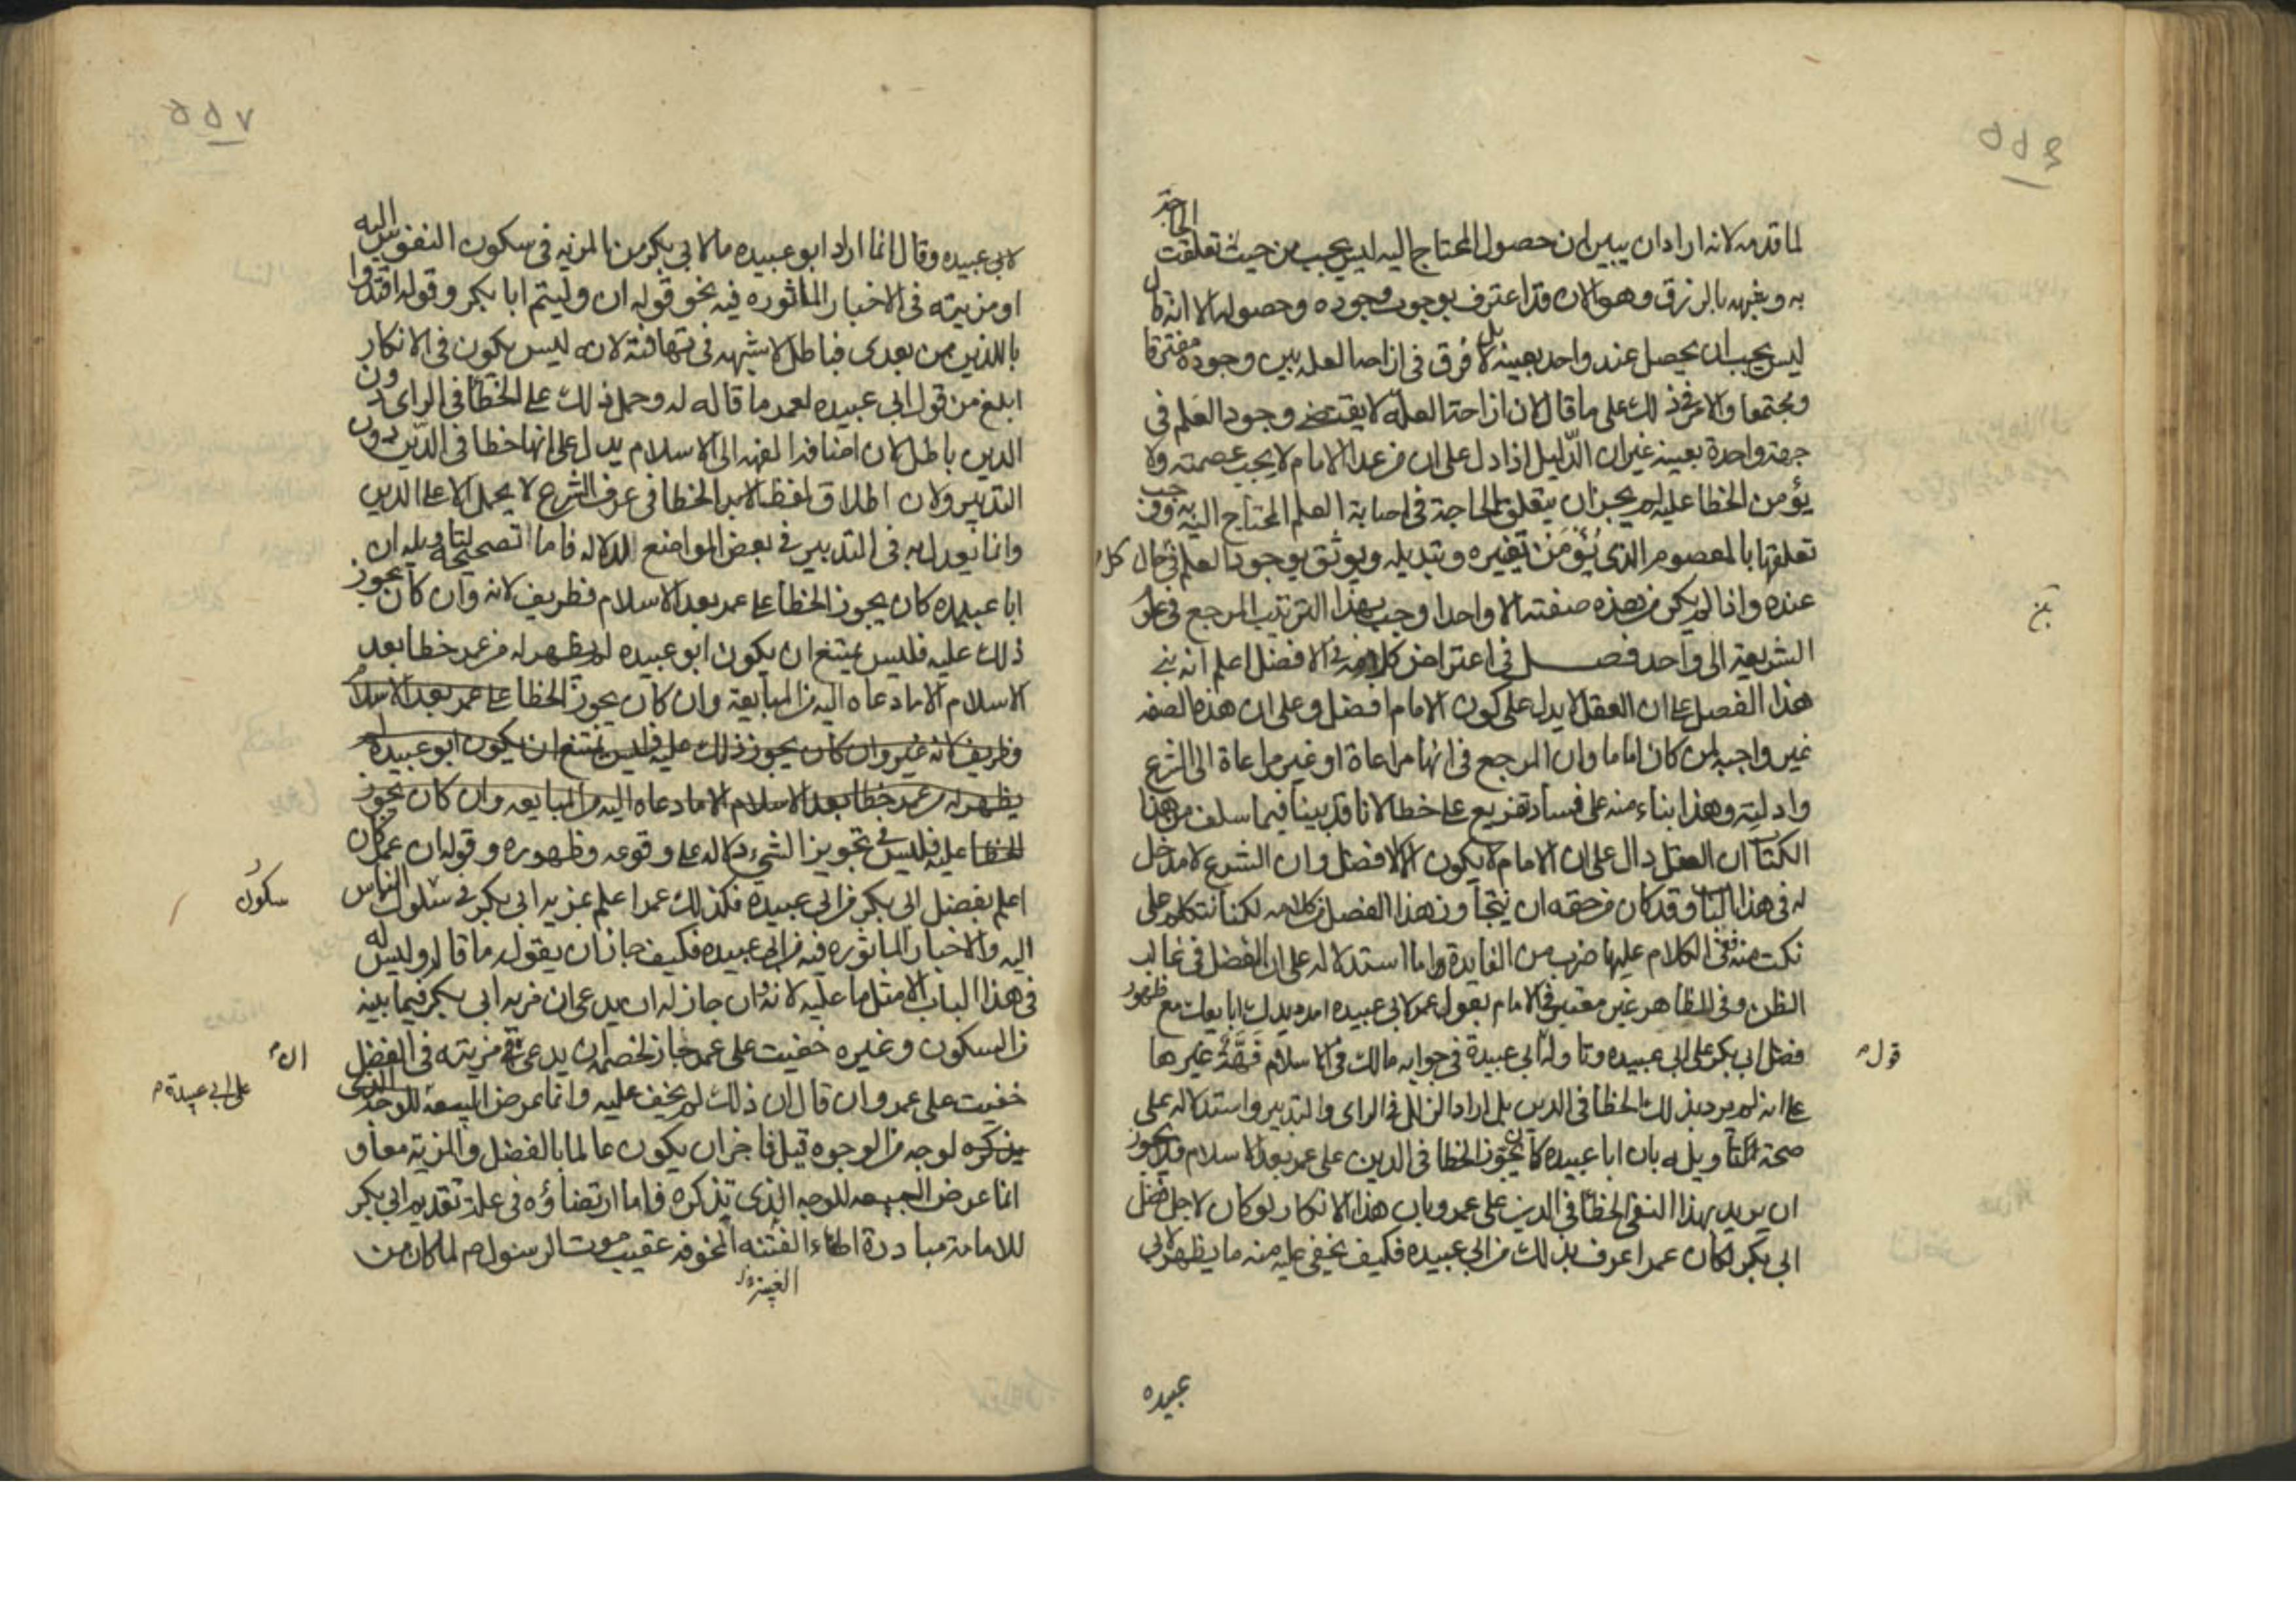 ٥٥٦
لما قدمه لانه اراد ان يبين ان حصول المحتاج اليه ليس يجب من حيث تعلقت الحاجة
به وشبهه بالرزق وهو الان قد اعترف بوجوب وجوده وحصوله الا انه قال
ليس يجب ان يحصل عند واحد بعينه بل لا فرق في ازاحة العلة بين وجوده مفترقا
ومجتمعا والامر في ذلك على ما قال لان ازاحة العلة لا يقتضي وجود العلم في
جهة واحدة بعينه غير ان الدليل اذا دل على ان من عدا الامام لا يجب عصمته ولا
يؤمن الخطا عليه لم يجز ان يتعلق الحاجة في اصابة العلم المحتاج اليه به ووجب
تعلقها بالمعصوم الذي يُؤمَن تغييره وتبديله ويوثق بوجود العلم في كل حال
عنده واذا لم يكن من هذه صفته الا واحدا وجب بهذا الترتيب المرجع في علم
الشريعة الى واحد فصل في اعتراض كلامه في الافضل اعلم انه بنى
هذا الفصل على ان العقل لا يدل على كون الامام افضل وعلى ان هذه الصفه
غير واجبه لمن كان اماما وان المرجع في انها مراعاة او غير مراعاة الى الشرع
وادلته وهذا بناء منه على فساد وتفريع على خطا لانا قد بينا فيما سلف من هذا
الكتاب ان العقل دال على ان الامام لا يكون الا الافضل وان الشرع لا مدخل
له في هذا الباب وقد كان من حقه ان يتجاوز هذا الفصل من كلامه لكنا نتكلم على
نكت منه ففي الكلام عليها ضرب من الفايدة واما استدلاله على ان الفضل في غالب
الظن وفي الظاهر غير معتبر في الامام بقول عمر لابي عبيده امدد يدك ابايعك مع ظهور
فضل ابي بكر على ابي عبيده وتاوله قول ابي عبيدة في جوابه مالك في الاسلام فَهَّة غيرها
على انه لم يرد بذلك الخطا في الدين بل اراد الزلل في الراى والتدبير واستدلاله على
صحة التاويله بان ابا عبيده كان يجوز الخطا في الدين على عمر بعد الاسلام فلا يجوز
ان يريد بهذا النفي الخطا في الدين على عمر وبان هذا الانكار لو كان لاجل فضل
ابي بكر لكان عمر اعرف بذلك من ابي عبيده فكيف يخفى عليه منه ما يظهر لابي
عبيده
٥٥٧
لابي عبيده وقال انما اراد ابو عبيده ما لابي بكر من المزيه في سكون النفوس اليه
او مزيته في الاخبار الماثوره فيه نحو قوله ان وليتم ابا بكر وقوله اقتدوا
باللذين من بعدى فباطل لا شبهه في تهافته لانه ليس يكون في الانكار
ابلغ من قول ابي عبيده لعمر ما قاله له وحمل ذلك على الخطا في الراى دون
الدين باطل لان اضافة الفهه الى الاسلام يدل على انها خطا في الدين دون
التدبير ولان اطلاق لفظ الخطا في عرف الشرع لا يحمل الا على الدين
وانما يعدل به في التدبير في بعض المواضع للدلاله فاما تصحيحه لتاويله ان
ابا عبيده كان يجوز الخطا على عمر بعد الاسلام فظريف لانه وان كان يجوز
ذلك عليه فليس يمتنع ان يكون ابو عبيده لم يظهر له من عمر خطا بعد
الاسلام الا ما دعاه اليه من المبايعة وان كان يجوز الخطا على عمر بعد الاسلام
فظريف لانه غير وان كان يجوز ذلك عليه فليس يمتنع ان يكون ابو عبيده لم
يظهر له من عمر خطا بعد الاسلام الا ما دعاه اليه من المبايعه وان كان يجوز
الخطا عليه فليس في تجويز الشيء دلاله على وقوعه وظهوره وقوله ان عمر كان
اعلم بفضل ابي بكر من ابي عبيده فكذلك عمر اعلم بمزيه ابي بكر في سكون الناس
سكون
اليه والاخبار الماثوره فيه من ابي عبيده فكيف جاز ان يقول له ما قاله وليس
في هذا الباب الا مثل ما عليه لانه ان جاز له ان يدعى ان مزيه ابي بكر فيما بينه
من السكون وغيره خفيت على عمر جاز لخصمه ان يدعى ان مزيته في الفضل
على ابي عبيدة خفيت على عمر وان قال ان ذلك لم يخف عليه وانما عرض البيعة للوجه الذي
يذكره لوجه من الوجوه قيل فاجز ان يكون عالما بالفضل والمزية معا و
انما عرض البيعه للوجه الذي تذكره فاما ارتضاؤه في علة تقديم ابي بكر
للامامة مبادرة اطفاء الفتنه المخوفه عقيب موت الرسول م لما كان من